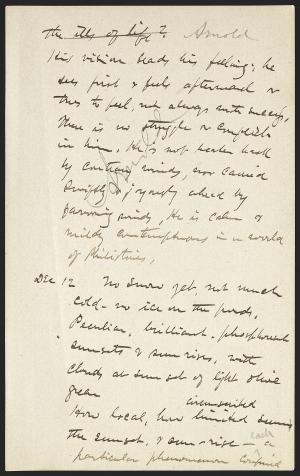 the ills of life? Arnold
His vision leads his feeling; he
sees first & feels afterward &
tries to feel, not always with success,
There is no struggle or conflict
in him, He is not beaten back
by contrary winds, nor carried
swiftly & joyously ahead by
favoring winds, He is calm &
mildly contemptuous in a world
of Philistines,
Dec 12 No snow yet, not much
cold - no ice on the ponds,
Peculiar, brilliant, phosphorescent
sunsets & sun rises, with
clouds at sun set of light olive
green
circumscribed
How local, how limited seem
the sunset, & sun-rise - a
each
particular phenomenon confined